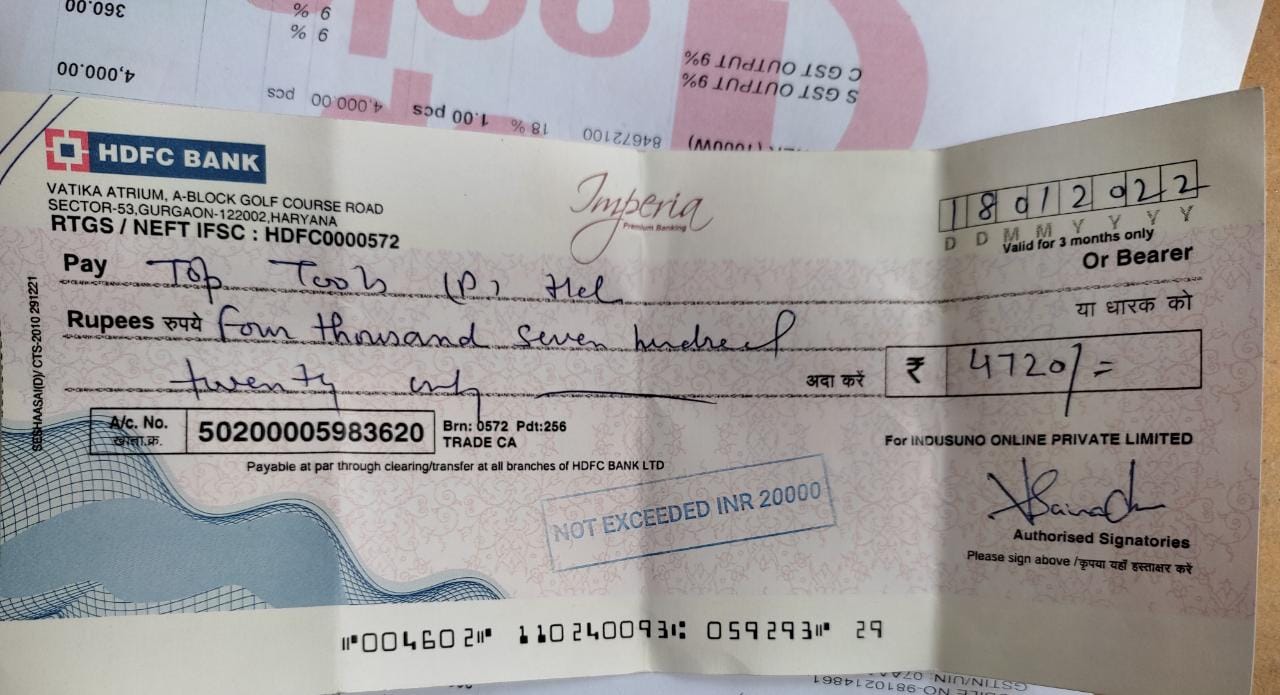 360.00
9 %
9 %
C GST OUTPUT 9%
S GST OUTPUT 9%
4,000.00
pcs
4,000.00
1.00 pcs
18 %
84672100
(1000W)
HDFC BANK
VATIKA ATRIUM, A-BLOCK GOLF COURSE ROAD
SECTOR-53,GURGAON-122002,HARYANA
RTGS / NEFT IFSC : HDFC0000572
Imperia
Premium Banking
18012022
D D M M Y Y Y Y
Valid for 3 months only
Pay Top Tools (P) Ltd
Or Bearer
या धारक को
Rupees रुपये Four thousand seven hundred
twenty only
अदा करें
₹ 4720/=
A/c. No.
खाता.क्र.
50200005983620
Brn: 0572 Pdt:256
TRADE CA
For INDUSUNO ONLINE PRIVATE LIMITED
Payable at par through clearing/transfer at all branches of HDFC BANK LTD
NOT EXCEEDED INR 20000
Authorised Signatories
Please sign above /कृपया यहाँ हस्ताक्षर करें
SESHAASAI(D)/ CTS-2010 291221
⑈004602⑈ 110240093⑆ 059293⑈ 29
GSTIN/UIN: 07AA
NO-9810214861